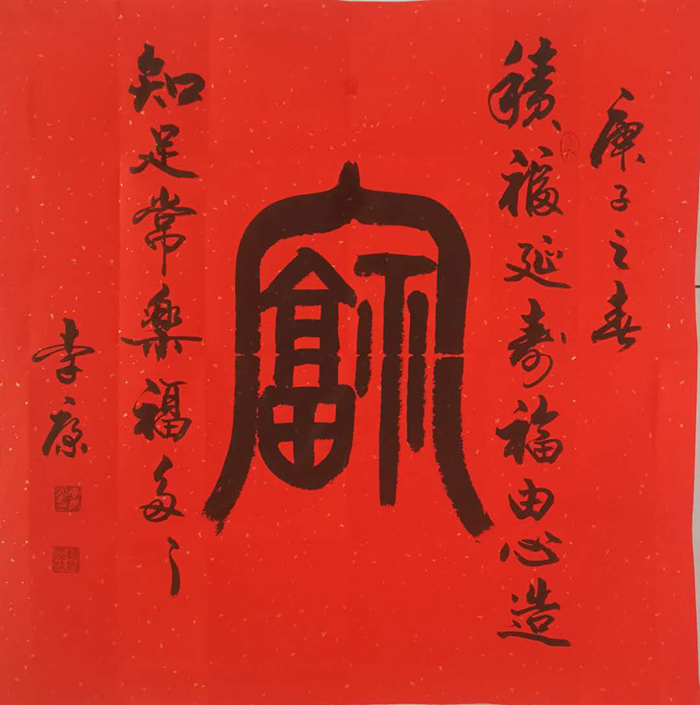 庚子之春
積福延寿福由心造
福
知足常樂福多多
李康